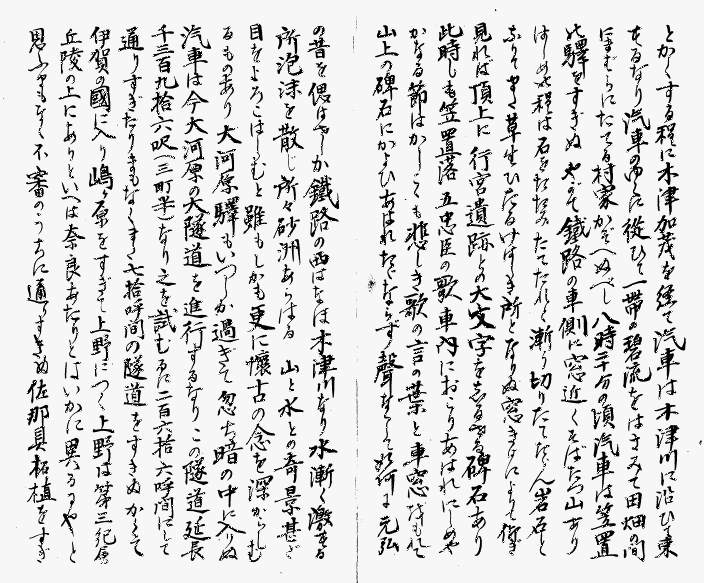 とかくする程に木津加茂を経て汽車は木津川に沿ひて東
するなり汽車のゆくに従ひて一帯の碧流をはさみて田畑の間
にまばらにたてる村家かぞへぬべし八時三十分の頃汽車は笠置
の驛をすぎぬ やがて鐵路の車側に窓近くそばたつ山あり
はしめの程は石をたたみたてたれど漸く切りたてたらん岩石と
なりて草生ひたるけはしき所となりぬ窓きはによりて仰ぎ
見れば頂上に 行宮遺跡との大文字をしるせる碑石あり
此時しも笠置落 五忠臣の歌 車内におこりあはれにしめや
かなる節はかしこくも悲しき歌の言の葉と車窓をもれて
山上の碑石にかよひあはれたならず聲をして如何に元弘
の昔を偲はせしか鐵路の西はなほ木津川なり水漸く激する
所泡沫を散じ所々砂洲あらはる 山と水との奇景甚だ
目をよろこばしむと雖もしかも更に懐古の念を深からしむ
るものあり大河原驛もいつしか過ぎて忽ち暗の中に入りぬ
汽車は今大河原の大隧道を進行するなりこの隧道延長
千三百九拾六呎(三町半)なり之を試むるに二百六拾六呼間にして
通りすぎたりまもなくまた七拾呼間の隧道をすきぬかくて
伊賀の國に入り嶋ヶ原をすぎて上野につく上野は第三紀層
丘陵の上にありといへは奈良あたりとはいかに異るやと
思ふまもなく不審のうちに通りすぎぬ佐那具柘植をすぎ